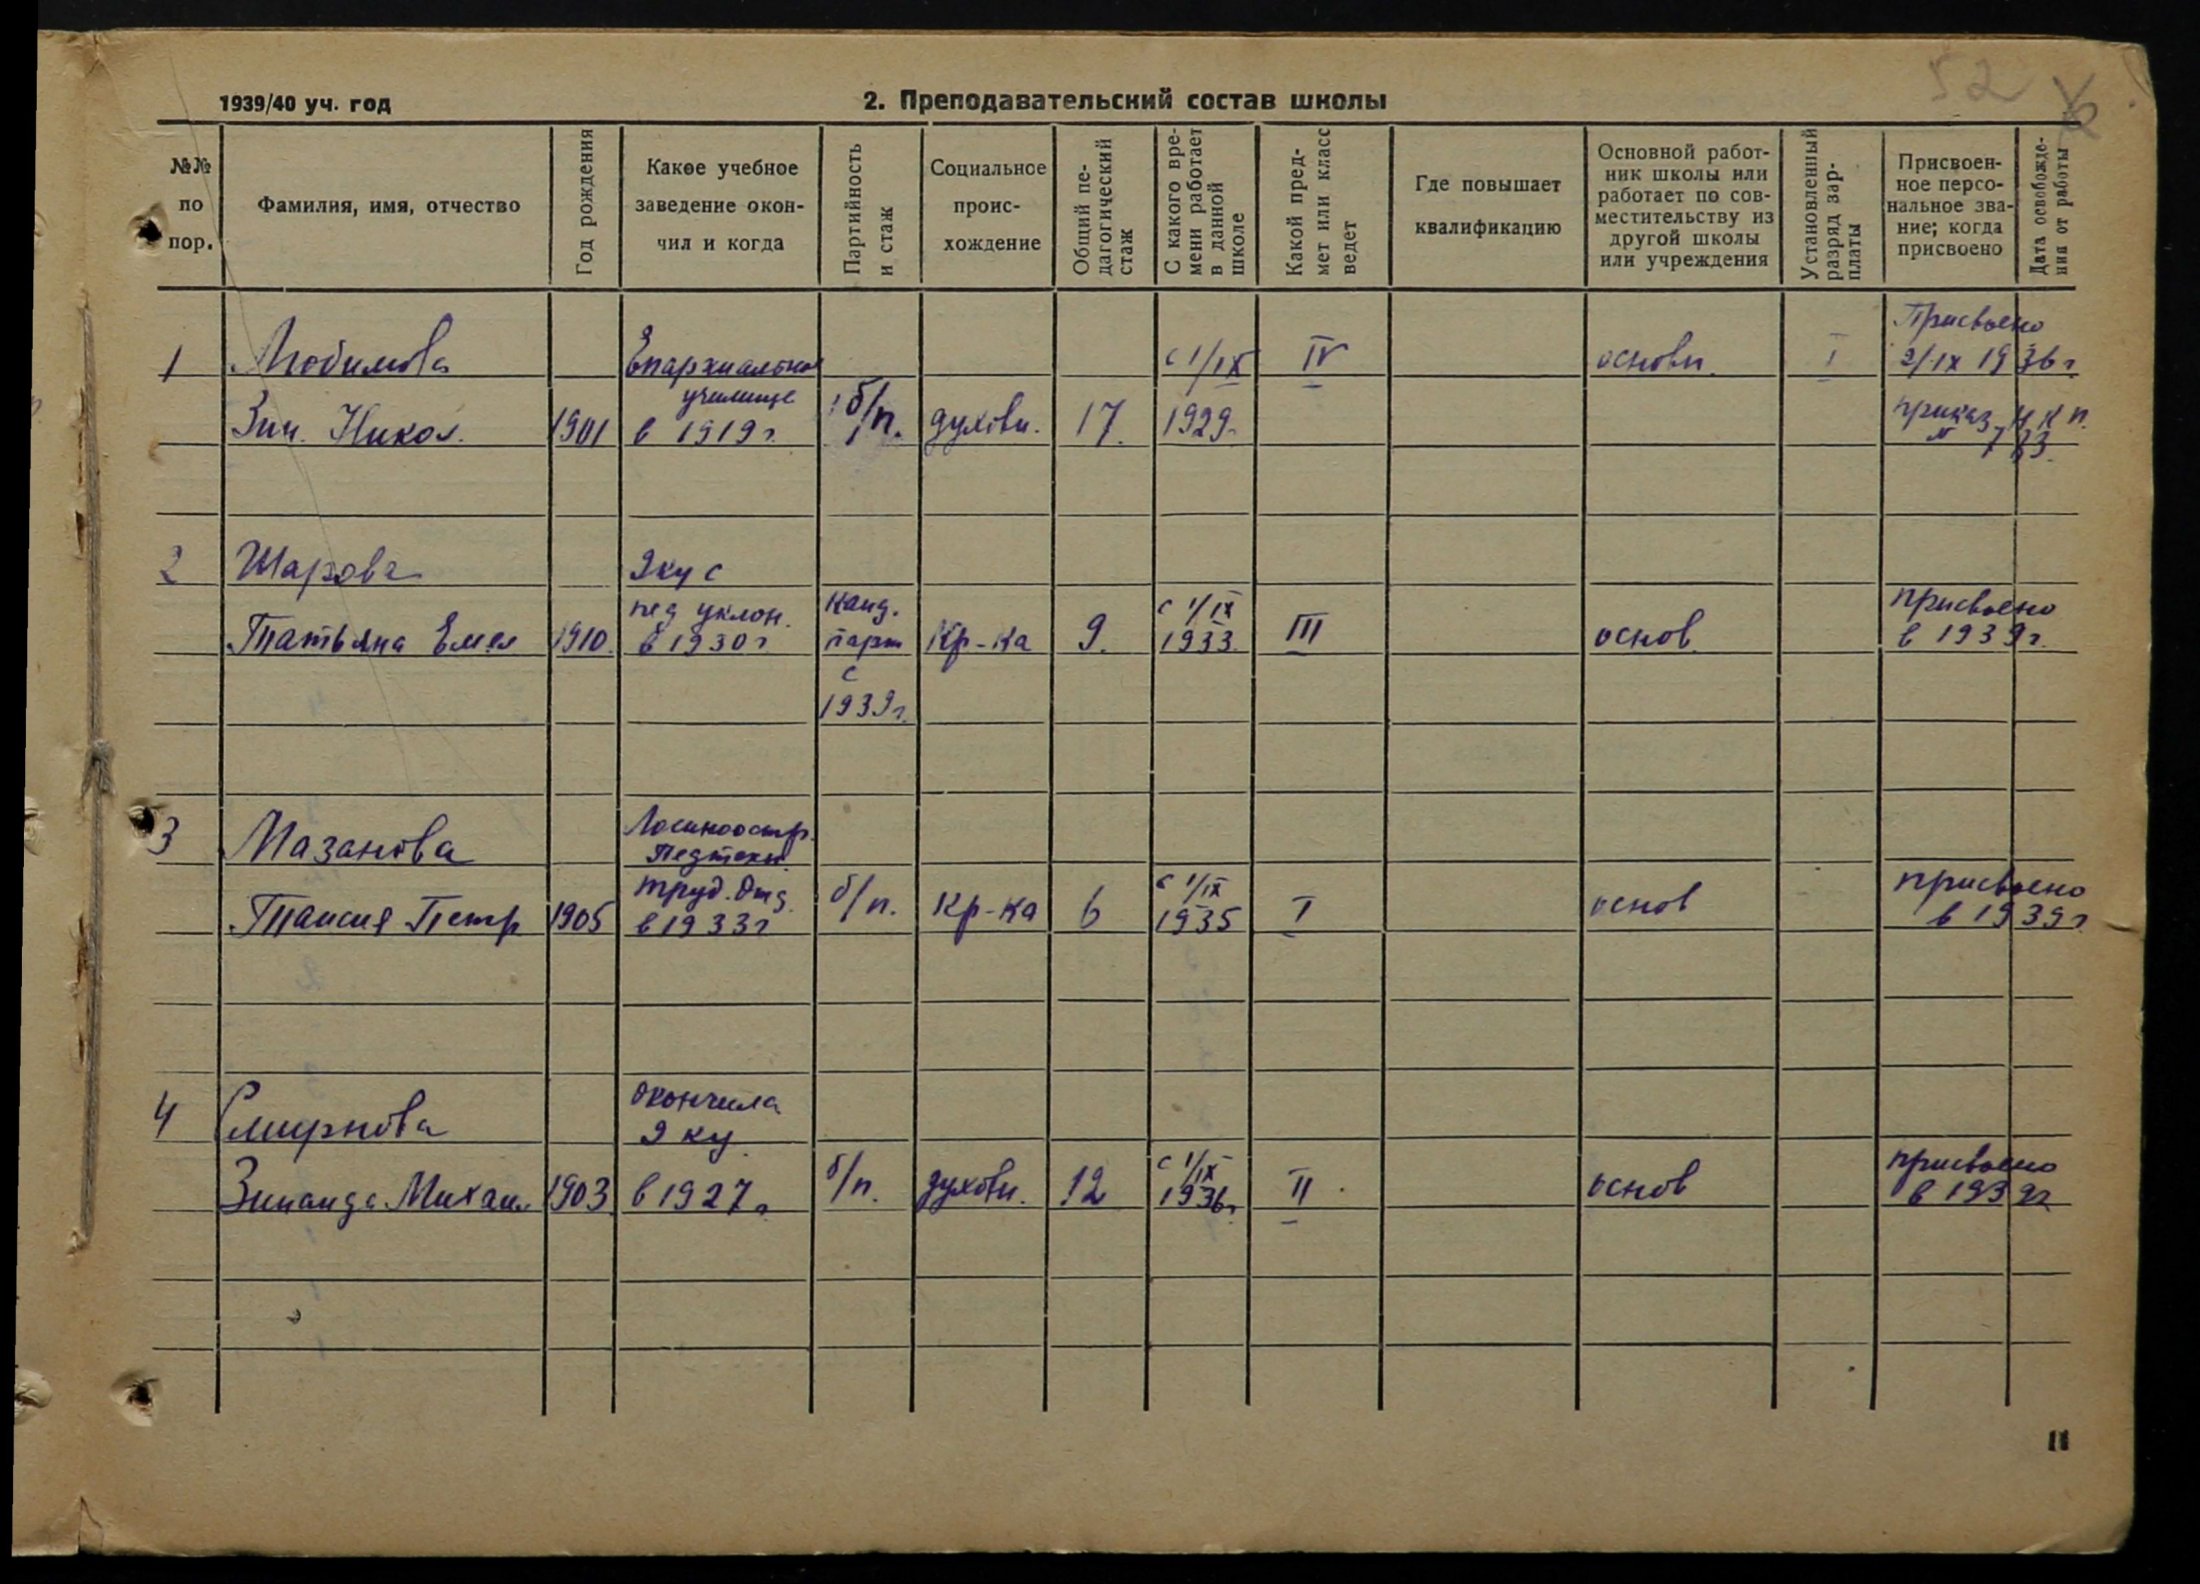 52
1939/40 уч. год
2. Преподавательский состав школы
№№ по пор.
Фамилия, имя, отчество
Год рождения
Какое учебное заведение окон-чил и когда
Партийность и стаж
Социальное проис-хождение
Общий пе-дагогический стаж
С какого вре-мени работает в данной школе
Какой пред-мет или класс ведет
Где повышает квалификацию
Основной работ-ник школы или работает по сов-местительству из другой школы или учреждения
Установленный разряд зар-платы
Присвоен-ное персо-нальное зва-ние; когда присвоено
Дата освобожде-ния от работы
1 Любимова Епархиальное с 1/IX IV основн. I Присвоено 2/IX 1936 г.
училище
Зин. Никол. 1901 в 1919 г. б/п. духовн. 17. 1929 г. приказ Н К П.
№ 773
2 Шарова 9 ку с
Татьяна Емел 1910. пед уклон. в 1930 г канд. парт Кр-ка 9. с 1/IX 1933. III основ. присвоено в 1939 г.
с
1939 г.
3 Мазанова Лосиноостр. Педтехн.
Таисия Петр 1905 труд. Отд. в 1933 г б/п. Кр-ка 6 с 1/IX 1935 I основ присвоено в 1939 г
4 Смирнова окончила 9 ку
Зинаида Михаил. 1903 в 1927 г. б/п. духовн. 12 с 1/IX 1936 г. II основ присвоено в 1939 г
11